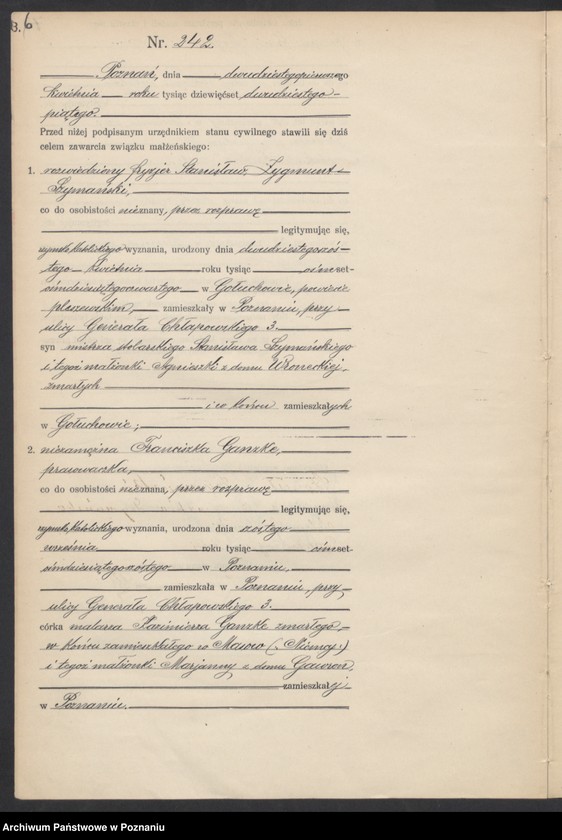 B. 6
Nr. 242.
Poznań, dnia dwudziestegopierwszego
kwietnia roku tysiąc dziewięćset dwudziestego-
piątego.
Przed niżej podpisanym urzędnikiem stanu cywilnego stawili się dziś
celem zawarcia związku małżeńskiego:
1. rozwiedziony fryzjer Stanisław, Zygmunt
Szymański,
co do osobistości nieznany, przez rozprawę
legitymując się,
rzymsk. katolickiego wyznania, urodzony dnia dwudziestegoszós-
tego kwietnia roku tysiąc ośmset-
ośmdziesiątegoczwartego w Gołuchowie, powiecie
pleszewskim, zamieszkały w Poznaniu, przy
ulicy Generała Chłapowskiego 3.
syn mistrza stolarskiego Stanisława Szymańskiego
i tegoż małżonki Agnieszki z domu Wroneckiej
zmarłych
i co końcu zamieszkałych
w Gołuchowie;
2. niezamężna Franciszka Ganzke,
prasowaczka,
co do osobistości nieznana, przez rozprawę
legitymując się,
rzymsk. katolickiego wyznania, urodzona dnia szóstego
września roku tysiąc ośmset
ośmdziesiątegoszóstego w Poznaniu,
zamieszkała w Poznaniu, przy
ulicy Generała Chłapowskiego 3.
córka malarza Kazimierza Ganzke zmarłego,
w końcu zamieszkałego w (Niemcy)
i tegoż małżonki Marjanny z domu Gawron,
zamieszkałej
w Poznaniu.
Archiwum Państwowe w Poznaniu